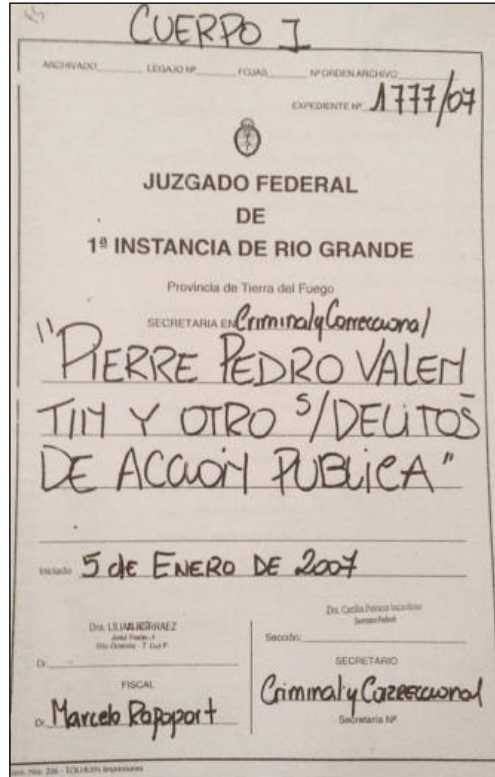 CUERPO I
ARCHIVADO LEGAJO Nº FOJAS Nº ORDEN ARCHIVO
EXPEDIENTE Nº 1777/07
JUZGADO FEDERAL
DE
1ª INSTANCIA DE RIO GRANDE
Provincia de Tierra del Fuego
SECRETARIA EN Criminal y Correccional
"PIERRE PEDRO VALEN
TIN Y OTRO S/DELITOS
DE ACCIÓN PUBLICA"
Iniciado 5 de ENERO DE 2007
Dra.
Juez Federal
Río Grande - T. del F.
Dr.
FISCAL
Dr. Marcelo Rapoport
Dra. Cecilia
Secretaria Federal
Sección:
SECRETARIO
Criminal y Correccional
Secretaría Nº
206 - TOLHUIN Impresiones